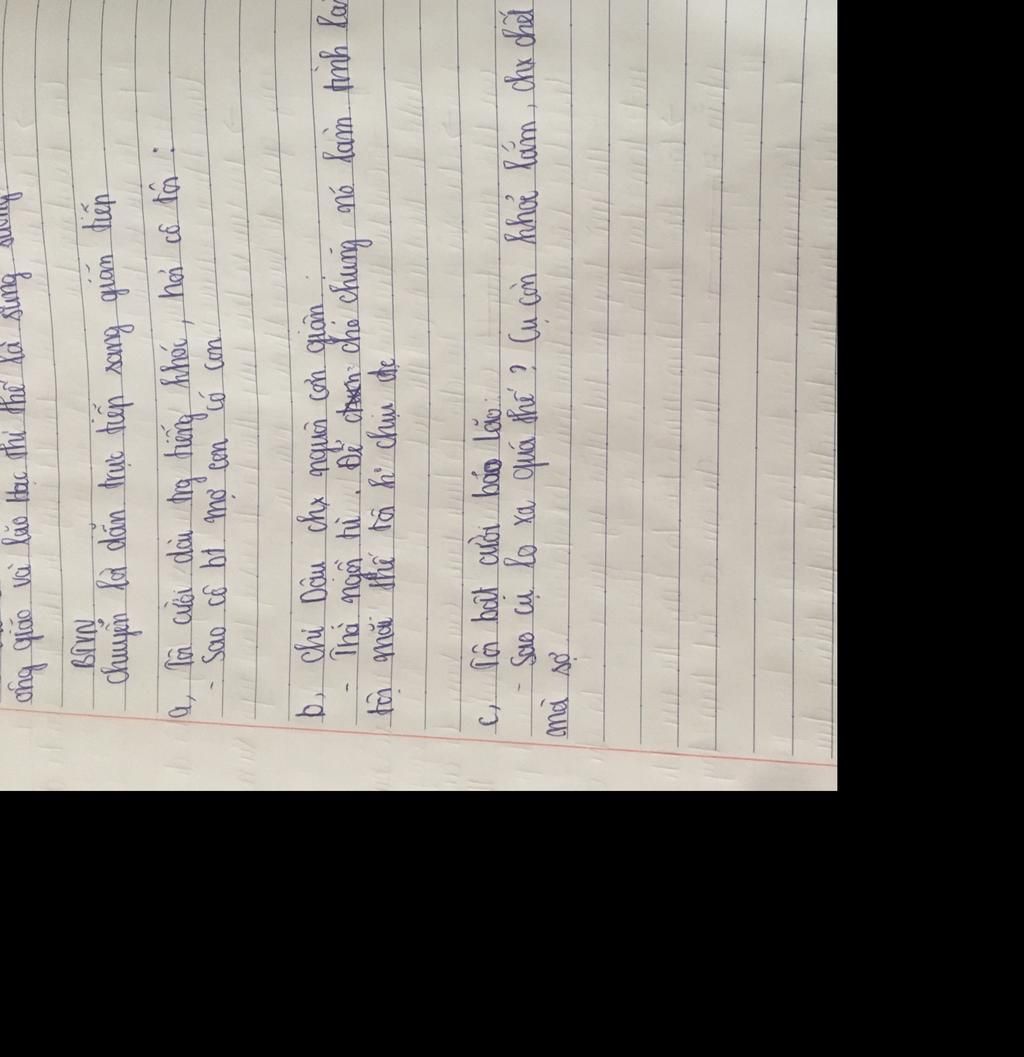 ông giáo và lão Hạc thì thế là sung sướng
BTVN
chuyển lời dẫn trực tiếp sang gián tiếp
a, Tôi cười dài trg tiếng khóc, hỏi cô tôi :
- Sao cô bt mợ con có con
b, Chị Dậu chx nguôi cơn giận
- Thà ngồi tù. Để cho chúng nó làm tình
tội mãi thế tôi k° chịu đc
c, Tôi bật cười bảo lão
- Sao cụ lo xa quá thế ? Cụ còn khỏe lắm, chx chết
mà sợ